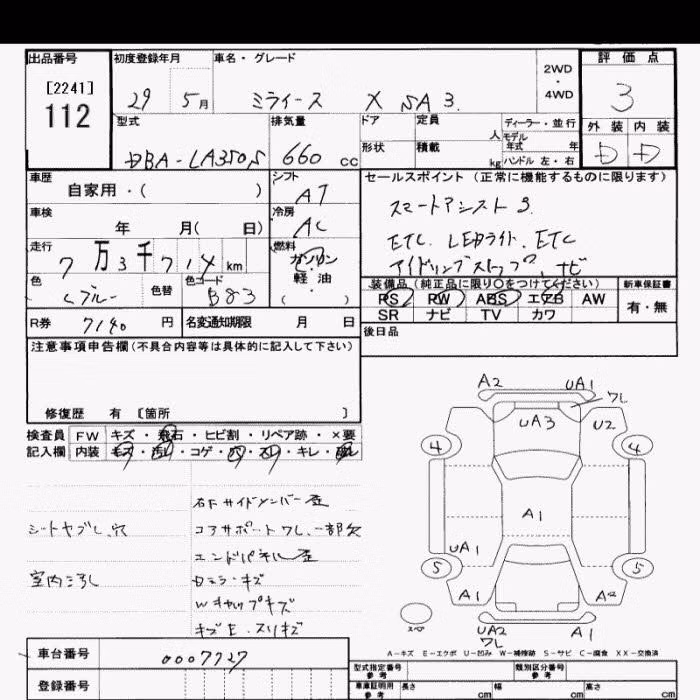 出品番号
[2241]
112
初度登録年月
29 5月
車名・グレード
ミライース X SA 3
2WD
・
4WD
評価点
3
外装 内装
D D
型式
DBA-LA350S
排気量
660 cc
ドア
形状
定員 人
積載 kg
ディーラー・並行
モデル
年式 年
ハンドル 左・右
車歴
自家用・( )
シフト
AT
車検
年 月( 日)
冷房
AC
走行
7万3千714km
燃料
ガソリン
軽油
( )
色
ブルー
色替
色コード
B83
R券 7140 円
名変通知期限 月 日
セールスポイント(正常に機能するものに限ります)
スマートアシスト3
ETC. LEDライト. ETC
アイドリングストップ ナビ
装備品(純正品に限り○をつけてください)
PS PW ABS エアB AW
SR ナビ TV カワ
新車保証書
有・無
後日品
注意事項申告欄(不具合内容等は具体的に記入して下さい)
修復歴 有 [箇所 ]
検査員
記入欄
FW キズ・飛石・ヒビ割・リペア跡・×要
内装 キズ・汚れ・コゲ・穴・スレ・キレ・
右下サイドメンバー歪
シートヤブレ、穴
コアサポートワレ、一部欠
エンドパネル歪
室内汚れ
Dミラーキズ
Wキャップキズ
キズE・スリキズ
A2 UA1
ワレ
UA3 U2
4 4
A1
UA1
5 5
A1 A2
スペア
UA2 A1
ワレ
A-キズ E-エクボ U-凹み W-補修跡 S-サビ C-腐食 XX-交換済
車台番号
0007727
登録番号
型式指定番号
参考
類別区分番号
参考
車庫証明用
参考
長さ cm
幅 cm
高さ cm